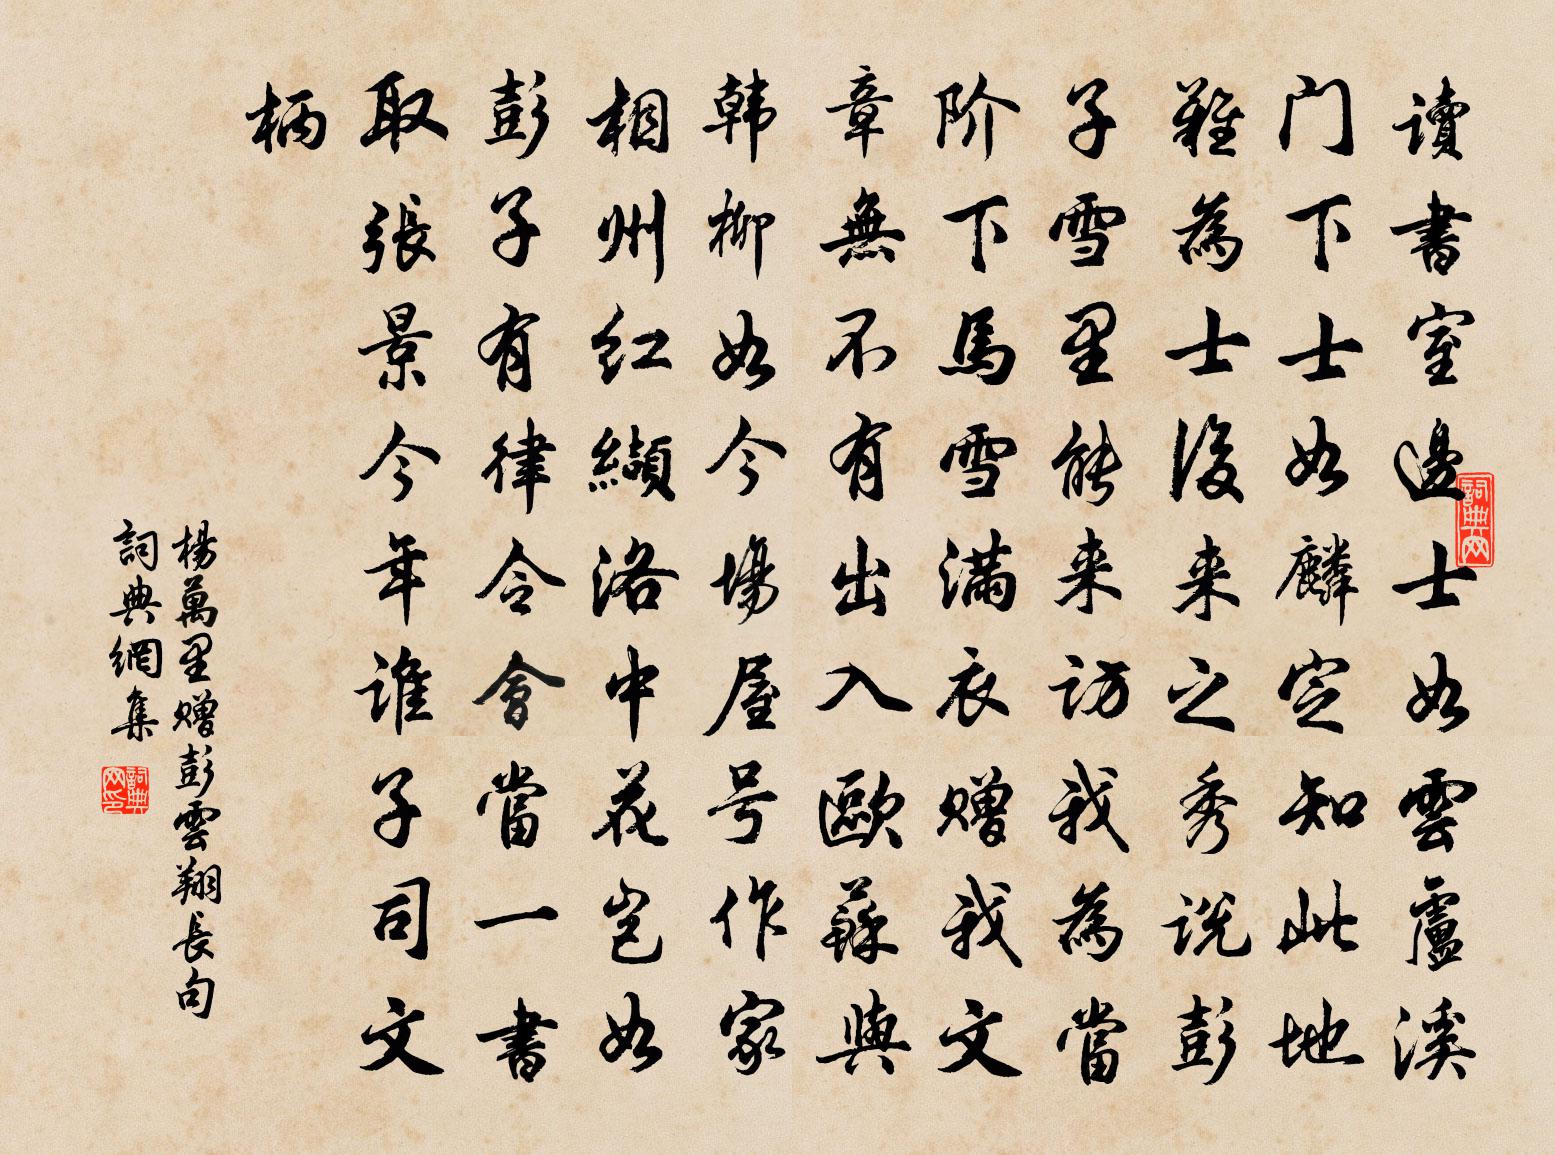 讀書室邊士如雲盧溪
门下士如麟定知此地
難為士後来之秀説彭
子雪里能来访我為當
阶下馬雪滿衣赠我文
章無不有出入歐蘇與
韩柳如今場屋号作家
相州红纈洛中花岂如
彭子有律令會當一書
取張景今年谁子司文
柄
詞典网
楊萬里赠彭雲翔長句
詞典網集
詞典网印